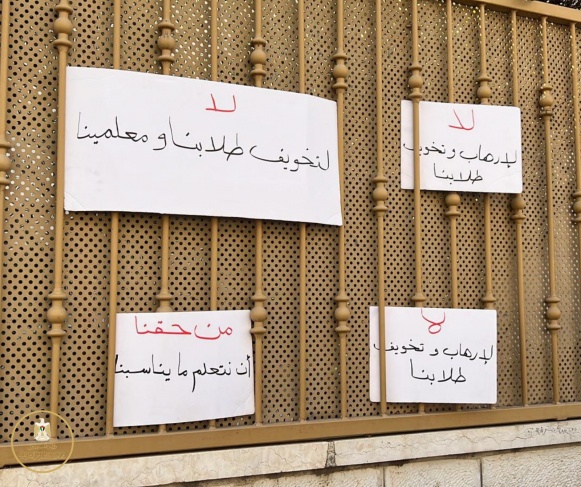 لا
لتخويف طلابنا و معلمينا
لا
لإرهاب و تخويف
طلابنا
من حقنا
أن نتعلم ما يناسبنا
لا
لإرهاب و تخويف
طلابنا